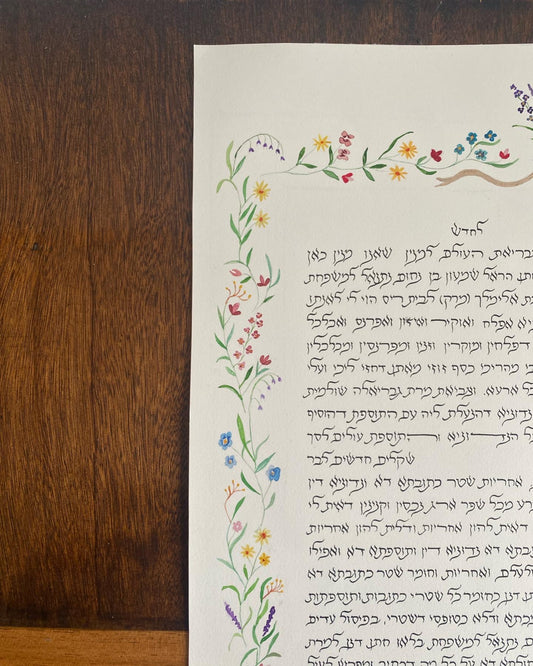 לחדש
בריאת העולם, למנין שאנו מנין כאן
חתן הראל שמעון בן נחום, נתנאל למשפחת
ת אלימלך (מרק) לבית ריס הוי לי לאנתו
יא אפלח ואוקיר ואיזון ואפרנס ואכלכל
דפלחין ומוקרין וזנין ומפרנסין ומכלכלין
כי מהריכי כסף זוזי מאתן דחזי ליכי ועלי
כל ארעא. וצביאת מרת גבריאלה שולמית
נדוניא דהנעלת ליה עם התוספת דהוסיף
ל הנדוניא והתוספת עולים לסך
שקלים חדשים לבר
אחריות שטר כתובתא דא ונדוניא דין
רע מכל שפר ארג נכסין וקנינין דאית לי
דאית להון אחריות ודלית להון אחריות
ובתא דא נדוניא דין ותוספתא דא ואפילו
ולעלם, ואחריות וחומר שטר כתובתא דא
תן דנן כחומר כל שטרי כתובות ותוספתות
מכתא ודלא כטופסי דשטרי, בפיסול עדים
נתנאל למשפחת בלאו חתן דנן למרת
דא מכל מה דכתיב ומפרש לעיל